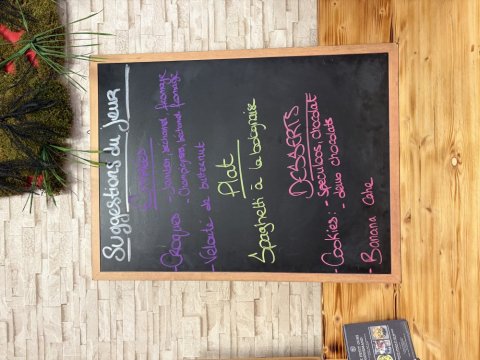 Suggestions du jour
Entrées
- Croques - jambon, béchamel fromage
- Champignon, béchamel fromage
- Velouté de butternut
Plat
Spaghetti à la bolognaise
DESSERTS
- Cookies : - Speculoos, chocolat
- deux chocolats
- Banana Cake